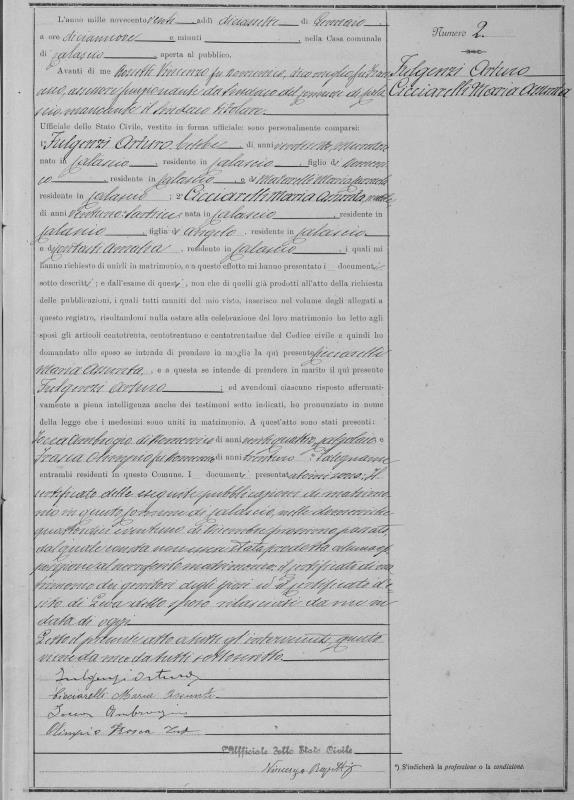 L'anno mille novecento venti, addì diciassette di Gennaio,
a ore diciannove e minuti , nella Casa comunale
di Calascio aperta al pubblico.
Avanti di me Vincenzo fu Domenico,
assessore funzionante da Sindaco del comune di Cala-
scio mancante il Sindaco titolare
Ufficiale dello Stato Civile, vestito in forma ufficiale: sono personalmente comparsi:
Fulgenzi Arturo celibe di anni
nato in Calascio, residente in Calascio, figlio di Domeni-
co, residente in Calascio e di Maria
residente in Calascio; 2° Cicciarelli Maria Assunta, nubile
di anni ventuno nata in Calascio, residente in
Calascio, figlia di Angelo, residente in Calascio
e di , residente in Calascio, i quali mi
hanno richiesto di unirli in matrimonio, e a questo effetto mi hanno presentato i documenti
sotto descritti; e dall'esame di questi, non che di quelli già prodotti all'atto della richiesta
delle pubblicazioni, i quali tutti muniti del mio visto, inserisco nel volume degli allegati a
questo registro, risultandomi nulla ostare alla celebrazione del loro matrimonio ho letto agli
sposi gli articoli centotrenta, centotrentuno e centotrentadue del Codice civile e quindi ho
domandato allo sposo se intende di prendere in moglie la qui presente Cicciarelli
Maria Assunta, e a questa se intende di prendere in marito il qui presente
Fulgenzi Arturo; ed avendomi ciascuno risposto affermati-
vamente a piena intelligenza anche dei testimoni sotto indicati, ho pronunziato in nome
della legge che i medesimi sono uniti in matrimonio. A quest'atto sono stati presenti:
Ambrogio di Domenico di anni ventiquattro, e
fu Domenico di anni trentuno falegname
entrambi residenti in questo Comune. I documenti presentati sono: Il
certificato delle eseguite pubblicazioni di matrimo-
nio in questo comune di Calascio, nelle domeniche
quattordici e ventuno di Dicembre prossimo passato
dal quale consta non essere stata prodotta alcuna op-
posizione al matrimonio, il certificato di
matrimonio dei genitori degli sposi ed il certificato di e-
sito di Leva dello sposo rilasciati da me in
data di oggi
Letto il presente atto a tutti gl'intervenuti, questo
viene da me da tutti sottoscritto
Fulgenzi Arturo
Cicciarelli Maria Assunta
Ambrogio
Olimpio Frasca Test
L'Ufficiale dello Stato Civile
Vincenzo
Numero 2.
Fulgenzi Arturo
Cicciarelli Maria Assunta
*) S'indicherà la professione o la condizione.